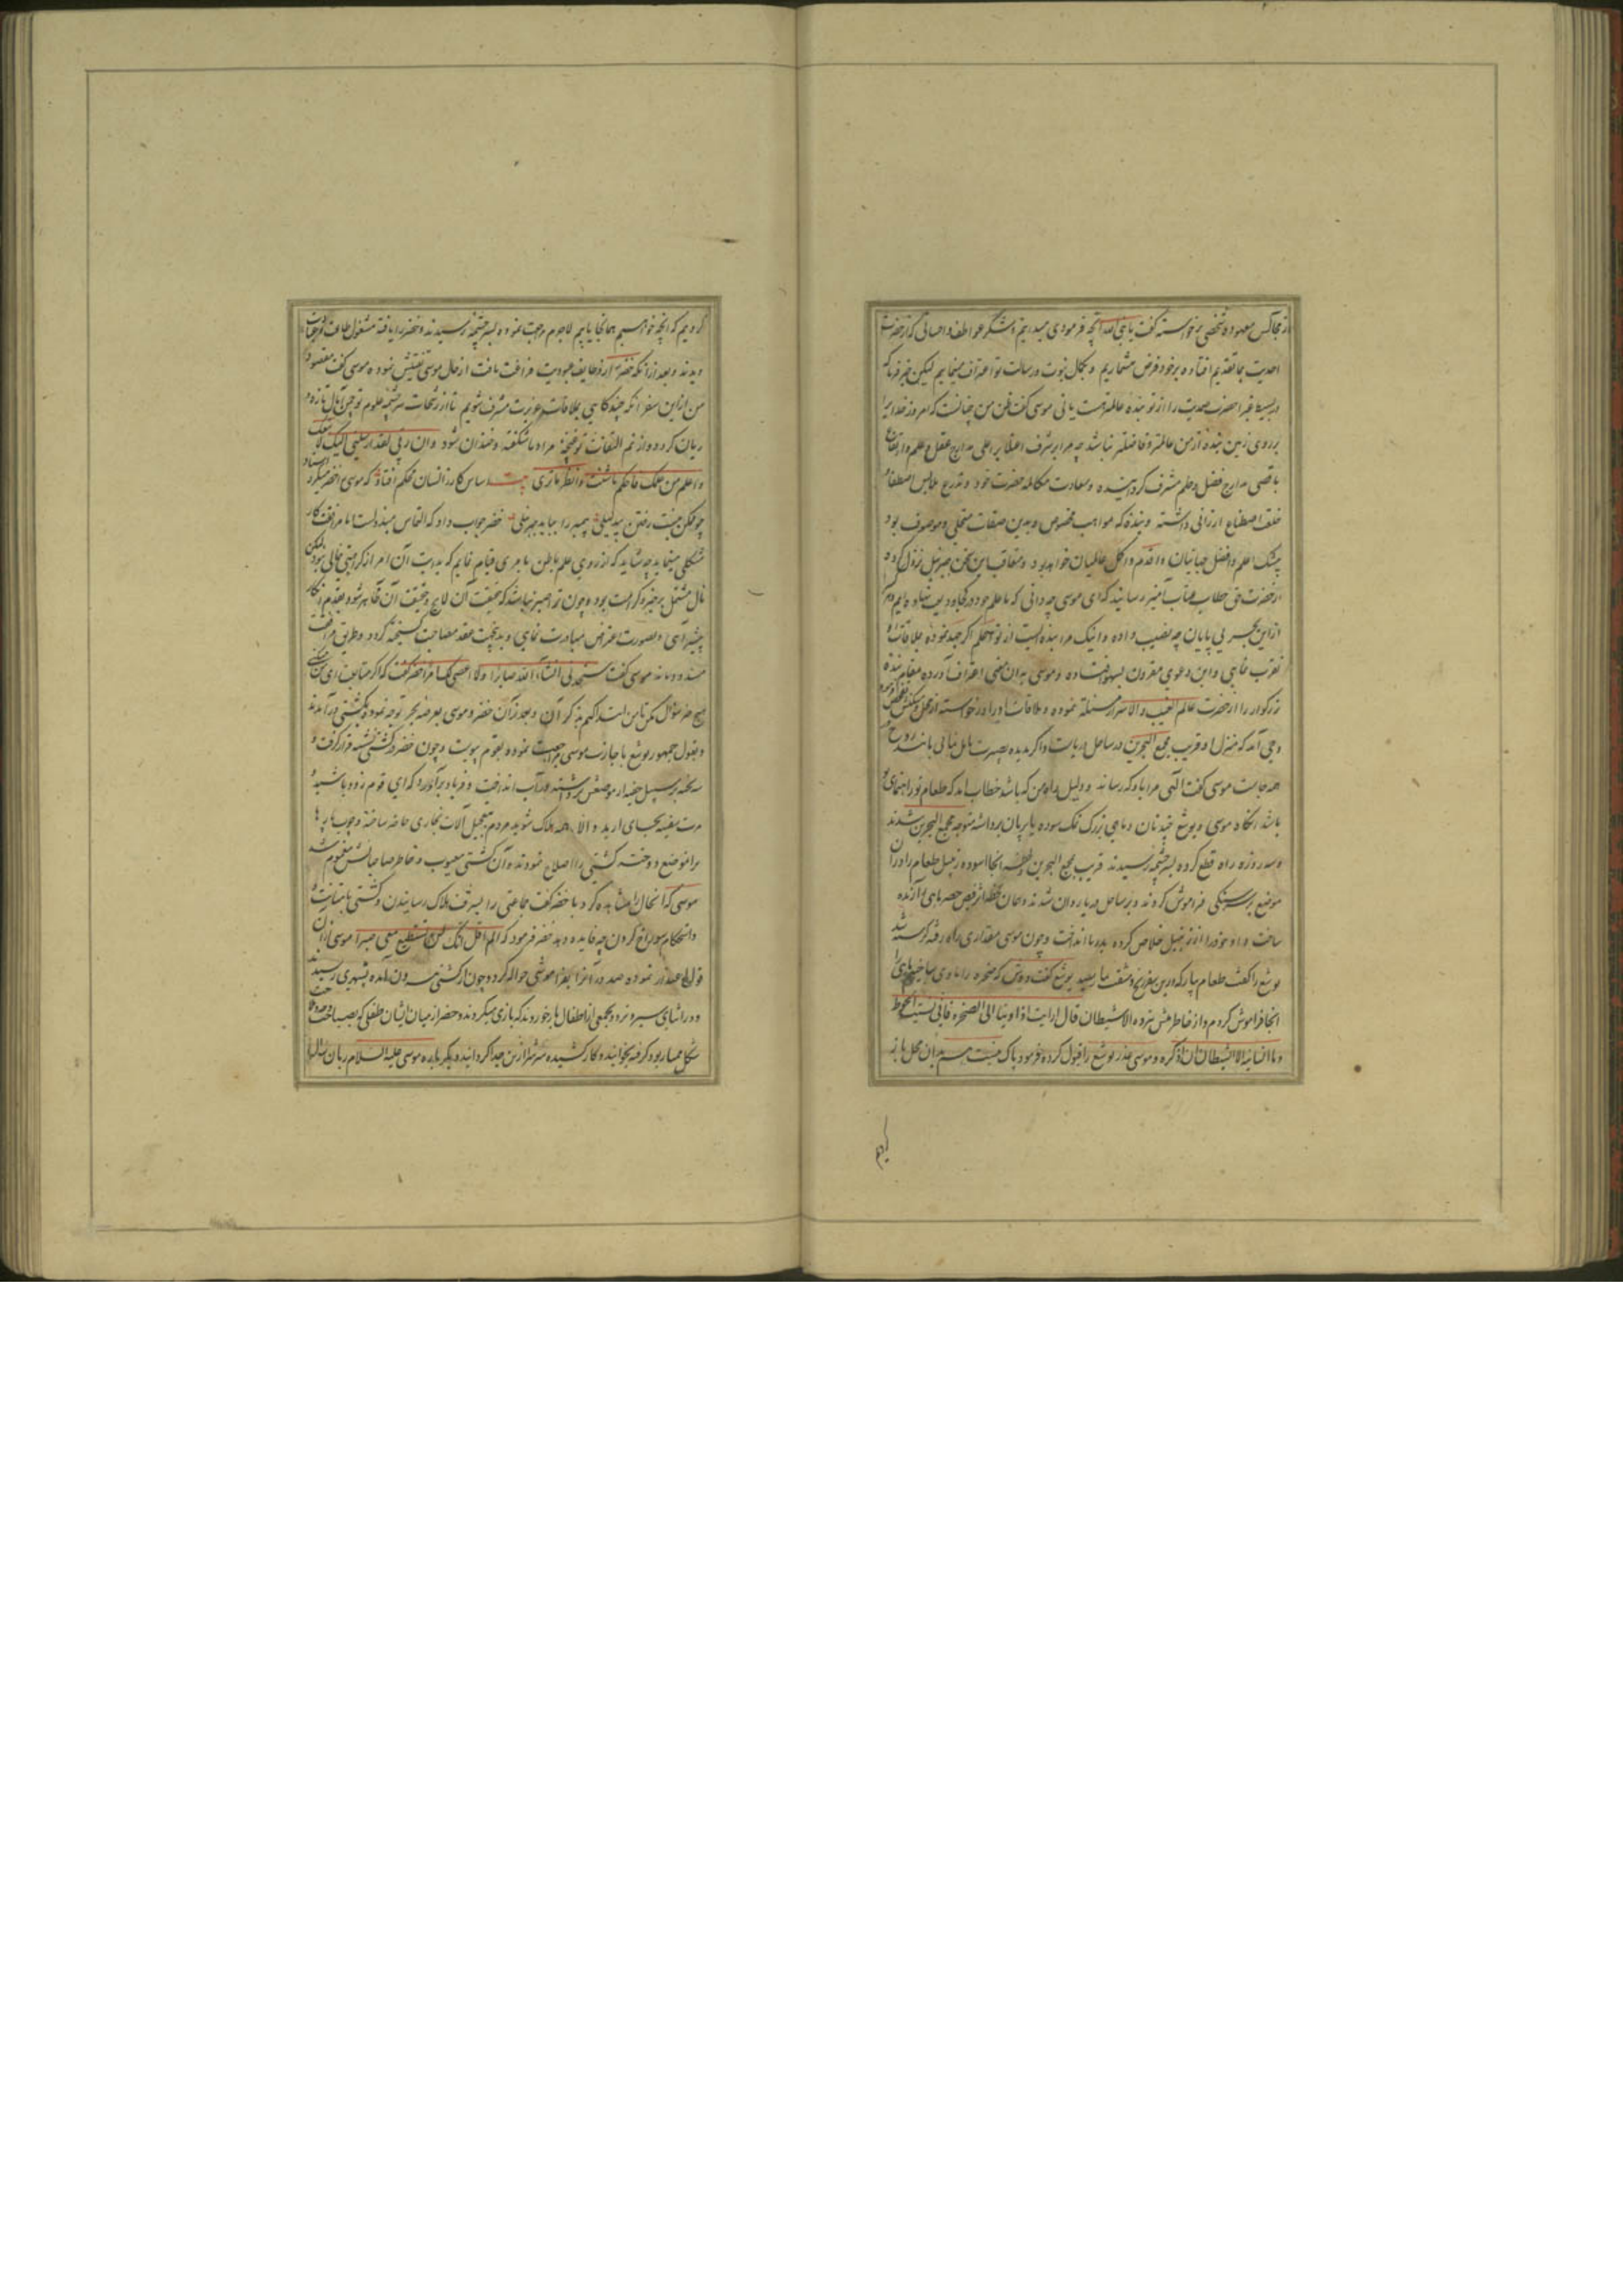 از مجالس معهوده شخصی برخواسته گفت یا نبی الله آنچه فرمودی میدانیم و شکر عواطف و احسانی که از حضرت
احدیت بما تقدیم افتاده بر خود فرض میشماریم و بکمال نبوت و رسالت تو اعتراف مینماییم لیکن خبر فرما که
در بسیط غبرا حضرت صمدیت را از تو بنده عالمتر هست یا نی موسی گفت ظن من چنانست که امروز خدایرا
بر روی زمین بنده از من عالمتر و فاضلتر نباشد چه مرا بشرف اعتلا بر اعلی مدارج عقل و علم و ارتقاع
باقصی مدارج فضل و حلم مشرف گردانیده و سعادت مکالمه حضرت خود و تدرع ملابس اصطفا
خلعت اصطناع ارزانی داشته و بنده که بمواهب مخصوص و بدین صفات متحلی و موصوف بود
بیشک اعلم و افضل جهانیان و اقدم و اکمل عالمیان خواهد بود و متعاقب این سخن جبرئیل نزول کرده
از حضرت حق خطاب عتاب آمیز رسانید که ای موسی چه دانی که ما علم خود در کجا ودیعت نهاده ایم
از این بحر بی پایان چه نصیب داده و اینک مرا بنده ایست از تو اعلم اگر جهد نموده ملاقات
تقرب خاهی و این دعوی مقرون بسهو افتاده و موسی بدان معنی اعتراف آورده مقام بنده
بزرگوار را از حضرت عالم الغیب و الاسرار مسئلت نموده و ملاقات او را درخواسته از محل
وحی آمد که منزل او قریب مجمع البحرین در ساحل دریاست و اگر بدیده بصیرت مایل نیایی مانند روح
همه جاست موسی گفت الهی مرا باو که رساند و دلیل راه من که باشد خطاب آمد که طعام تو راهنمای
باشد آنگاه موسی و یوشع چند نان و ماهی بزرگ نمک سوده یا بریان برداشته متوجه مجمع البحرین شدند
و سه روزه راه قطع کرده بسرچشمه رسیدند قریب مجمع البحرین و لحظه آنجا آسوده زنبیل طعام را در آن
موضع بر سر سنگی فراموش کردند و بر ساحل دریا روان شدند و همان لحظه از فیض خضر ماهی را زنده
ساخت و او خود را از زنبیل خلاص کرده بدریا انداخت و چون موسی مقداری راه رفته گرسنه شد
یوشع را گفت طعام بیار که درین سفر رنج و مشقت بما رسید یوشع گفت دوش که صخره را ماوی ساختیم ماهی را
آنجا فراموش کردم و از خاطر من نبرده الا شیطان قال ارایت اذ اوینا الی الصخره فانی نسیت الحوت
و ما انسانیه الا الشیطان ان اذکره و موسی عذر یوشع را قبول کرده فرمود باک نیست هم بدان محل باز
کردیم
کردیم که آنچه خواهیم همانجا یابیم لاجرم مراجعت نموده بسرچشمه رسیدند و خضر را یافته مشغول طاعت و عبادت
دیدند و بعد از آنکه خضر از وظایف عبودیت فراغت یافت از حال موسی تفتیش نموده موسی گفت مقصود
من از این سفر آنکه چندگاهی بملاقات عزیزت مشرف شویم تا از رشحات سرچشمه علوم تو چمن آمال تازه و
ریان گردد و از نم التفات تو غنچه مراد ما شکفته و خندان شود و ان ربی لقد ارسلنی الیک لاتبعک
و اعلم من علمک فاحکم ما شئت و انظر ما تری بیت اساس کار ز انسان محکم افتاد که موسی از خضر میکرد
چو ممکن نیست رفتن بیدلیلی پیمبر را بباید جبرئیلی خضر جواب داد که التماس مبذولست اما مرافقت کار
مشکلی مینماید چه شاید که از روی علم باطن بامری قیام نمایم که بدیهت آن امر از کراهیتی خالی نبود لیکن
مآل مشتمل بر خیر و کرامت بود و چون ترا صبر نباشد که حقیقت آن لایح و حقیقت آن ظاهر شود بقدم انکار
پیش آی و بصورت اعتراض مبادرت نمایی و بدینجهت عقد مصاحبت گسیخته گردد و طریق مرافقت
مسدود ماند موسی گفت ستجدنی انشاء الله صابرا و لا اعصی لک امرا خضر گفت که اگر متابعت رای من کنی
هیچ خبر سؤال مکن تا من ابتدا کنم بذکر آن و بعد از آن خضر و موسی بعرضه بحر توجه نموده بکشتی درآمدند
و بقول جمهور یوشع باجازت موسی مراجعت نموده بقوم پیوست و چون خضر در کشتی نشسته قرار گرفت و
سه تخته بر سبیل خفیه از موضعش برداشته در آب انداخت و فریاد برآورد که ای قوم زود باشید و
مرمت سفینه بجای آرید و الا همه هلاک شوید مردم بتعجیل آلات نجاری حاضر ساخته و چوب پاره ها
برانموضع دوخته کشتی را اصلاح نمودند و آن کشتی معیوب و خاطر صاحبانش مغموم شد
موسی که آنحال را مشاهده کرد با خضر گفت جماعتی را بشرف هلاک رسانیدن و کشتی بامتانت
و استحکام سوراخ کردن چه فایده دهد خضر فرمود که الم اقل انک لن تستطیع معی صبرا موسی از آن
قول اعتذار نموده صدور آنرا بفراموشی حواله کرد و چون از کشتی بیرون آمده بشهری رسیدند
و در اثنای سیر و تردد بجمعی از اطفال بازخوردند که بازی میکردند و خضر از میان ایشان طفلی که بصباحت
شکل ممتاز بود گرفته بخوابانید و کارد کشیده سرش از تن جدا گردانید دیگر باره موسی علیه السلام زبان